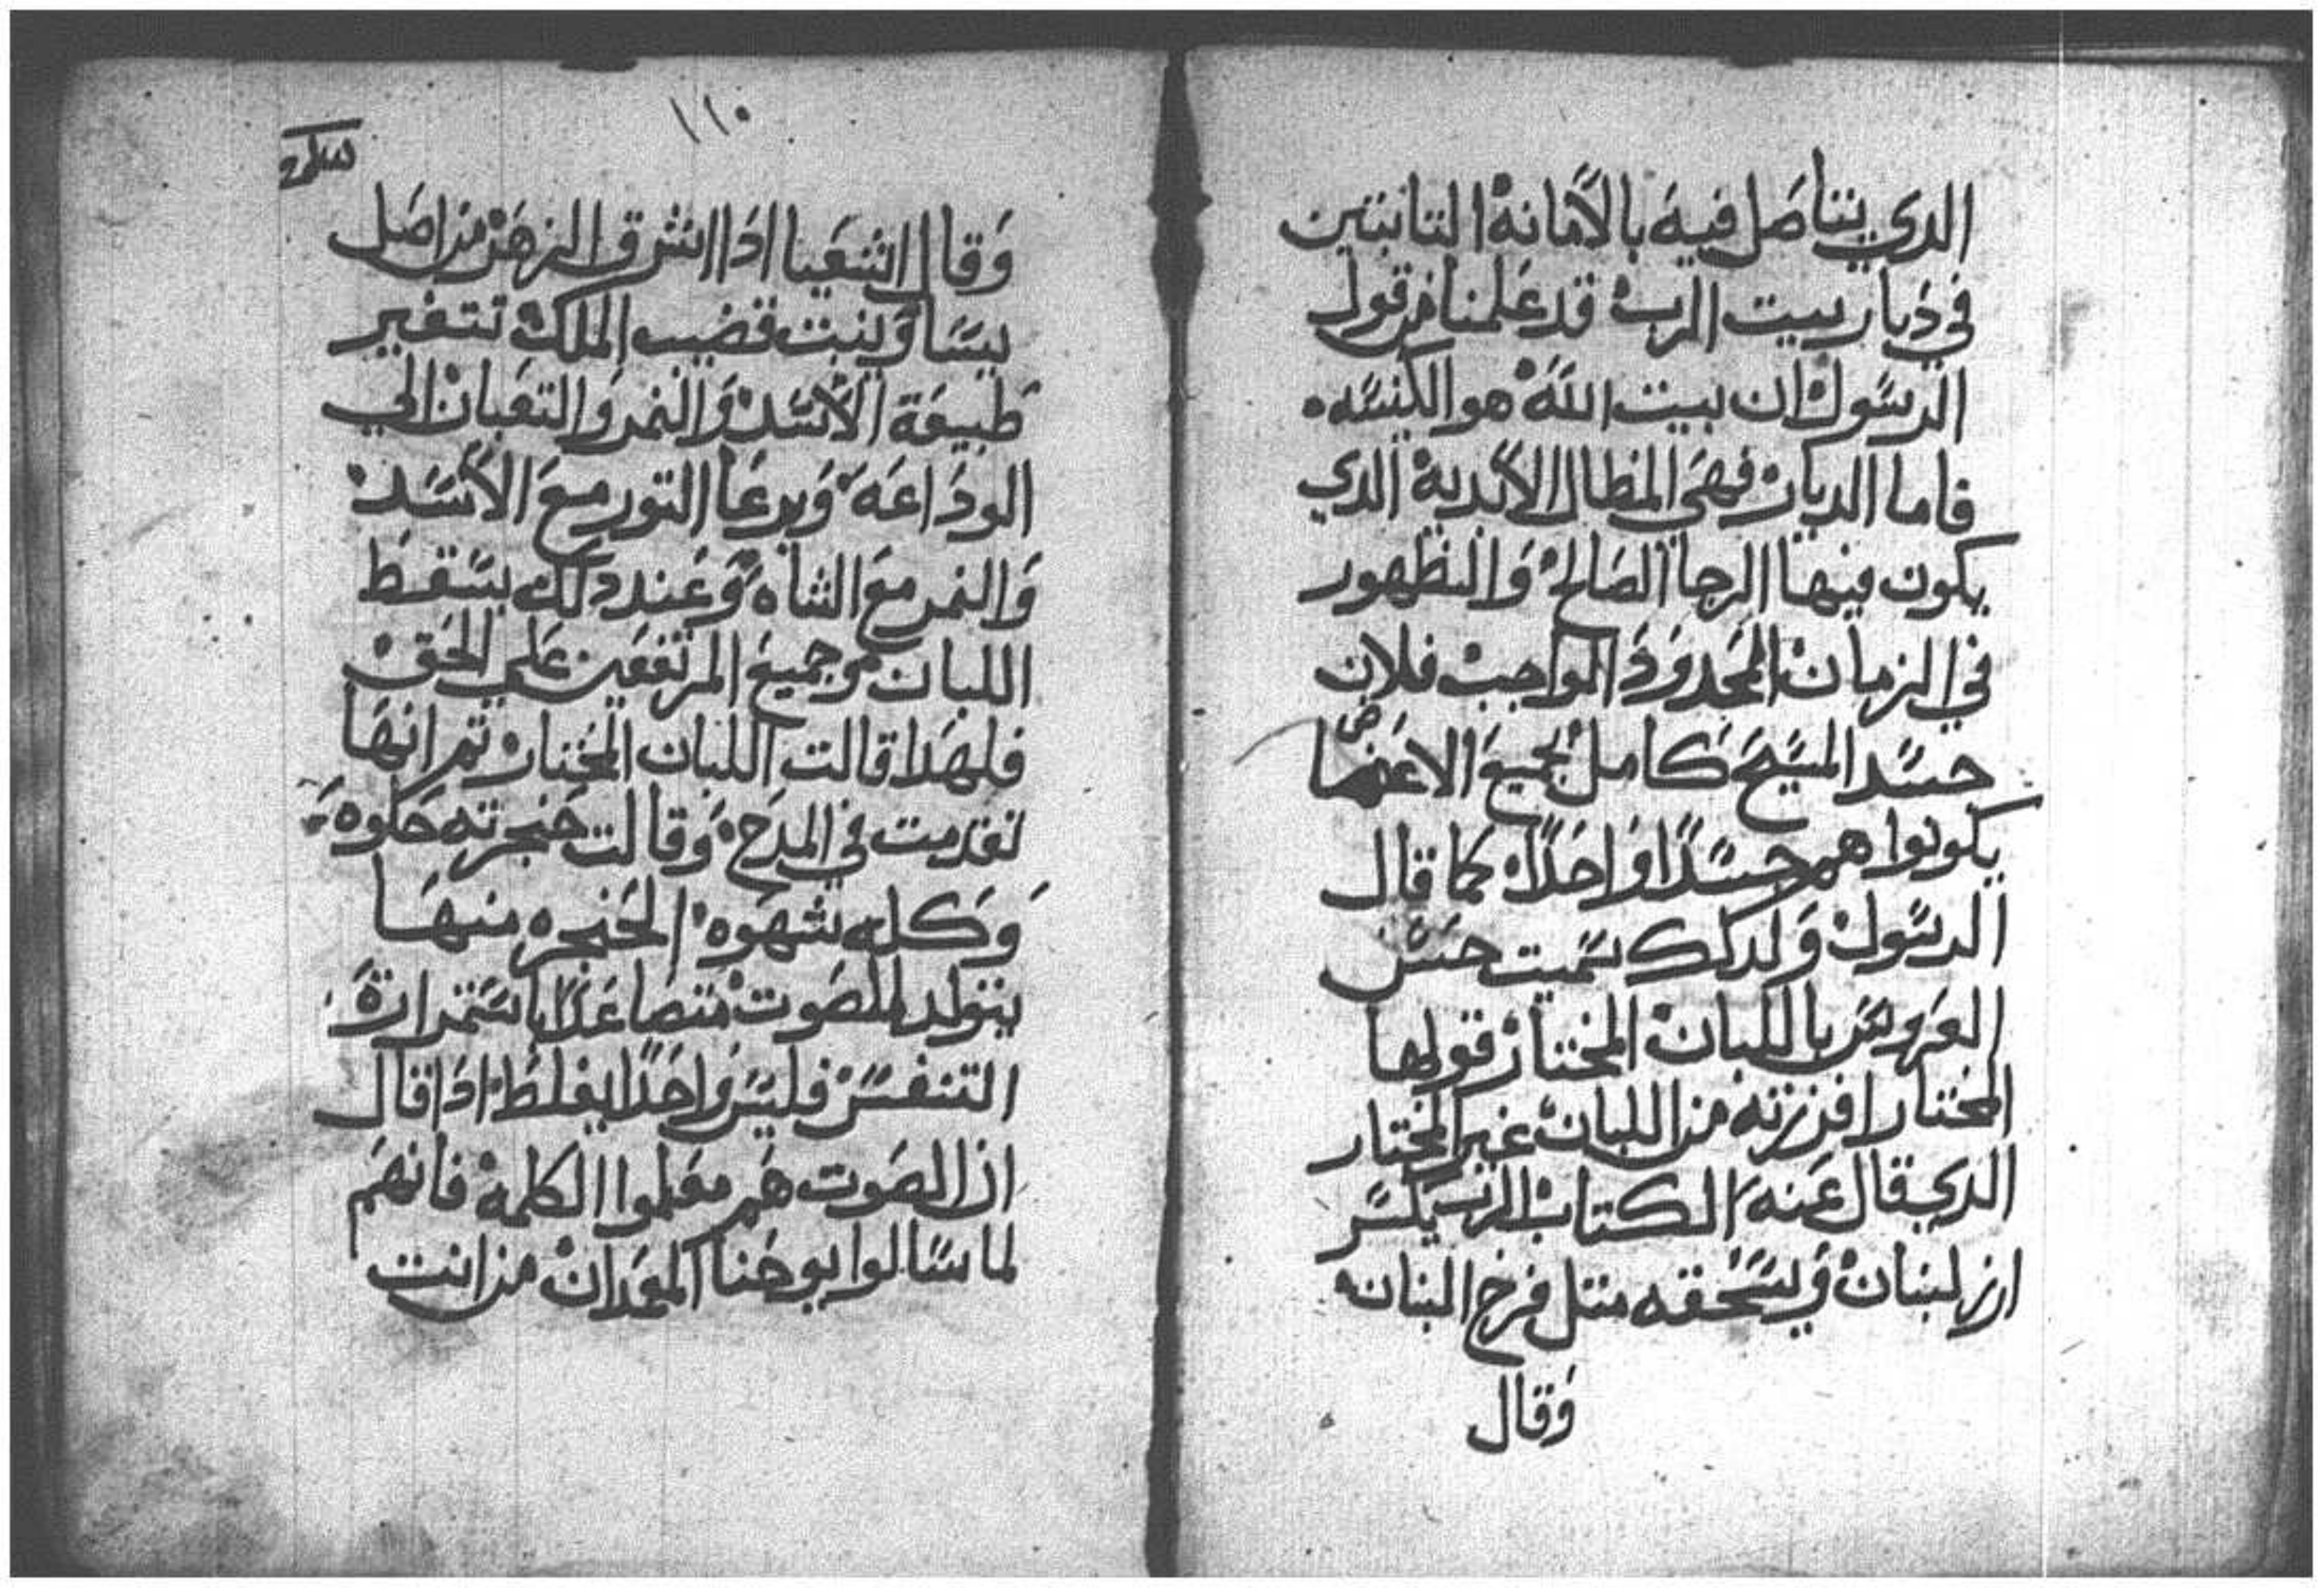 الدي يتاصل فيه بالامانة التابتين
في ديار بيت الرب قد علمنا من قول
الرسول ان بيت الله هو الكنسه.
فاما الديار فهي المظال الابدية الدي
يكون فيها الرجا الصالح والظهور
في الزمان المحدود الواجب فلان
جسد المسيح كامل بجميع الاعضا
يكونوا هم جسدًا واحدًا كما قال
الرسول ولدلك سميت حسن
العروس باللبان المختار قولها
المختار افرزته من اللبان غير المختار
الدي قال عنه الكتاب الرب يكسر
ارز لبنان ويسحقه متل فرخ لبنانه
وقال
١١٠
وقال اشعيا ادا اشرق الزهر من اصل
يسا وينبت قضيب الملك تتغير
طبيعة الاسد والنمر والتعبان الي
الوداعه ويرعا التور مع الاسد
والنمر مع الشاه وعند دلك يسقط
اللبان وجميع المرتفعين علي الحق
فلهدا قالت اللبان المختار تم انها
تقدمت في المدح وقالت حنجرته حلوه
وكله شهوه الحنجره منها
يتولد الصوت متصاعدًا باستمرارة
التنفس فليس واحدًا يغلط ادا قال
ان الصوت هم معلموا الكلمة فانهم
لما سالوا يوحنا المعمدان من انت